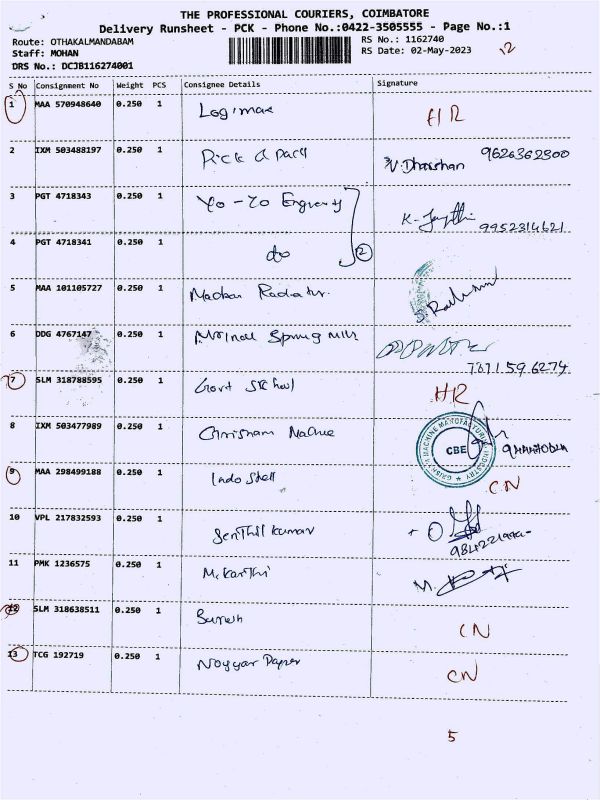 THE PROFESSIONAL COURIERS, COIMBATORE
Delivery Runsheet - PCK - Phone No.:0422-3505555 - Page No.:1
Route: OTHAKALMANDABAM
RS No.: 1162740
Staff: MOHAN
RS Date: 02-May-2023
12
DRS No.: DCJB116274001
S No Consignment No Weight PCS Consignee Details Signature
1 MAA 570948640 0.250 1 Logimax HR
2 IXM 503488197 0.250 1 Pick & Pack V. Dharshan 9626362300
3 PGT 4718343 0.250 1 Yo-Yo K. 9952314621
4 PGT 4718341 0.250 1 do 2
5 MAA 101105727 0.250 1 Radiator
6 DDG 4767147 0.250 1 Mills
7 SLM 318788595 0.250 1 Govt School HR
8 IXM 503477989 0.250 1 CBE
9 MAA 298499188 0.250 1 Indo Shell CN
10 VPL 217832593 0.250 1 Senthil kumar
11 PMK 1236575 0.250 1 M. Karthi M.
12 SLM 318638511 0.250 1 Suresh CN
13 TCG 192719 0.250 1 Noyyar Paper CN
5